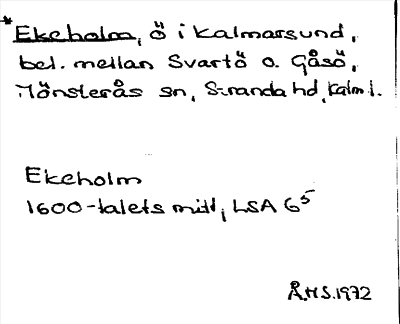 *Ekeholm, ö i Kalmarsund,
bel. mellan Svartö o. Gåsö,
Mönsterås sn, Stranda hd, Kalm l.
Ekeholm
1600-talets mitt, LSA G5
Å.H S. 1972